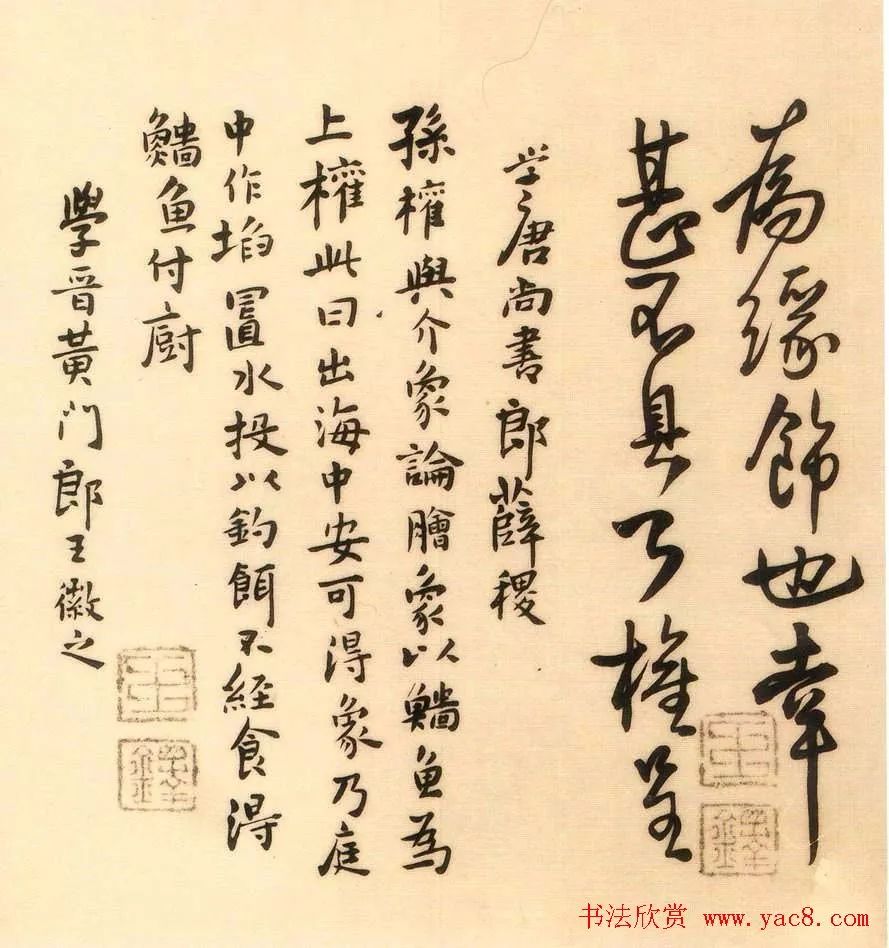 緣飾也幸
甚不具權呈
学唐尚書郎薛稷
孫權與介象論膾象以鯔魚為
上權此曰出海中安可得象乃庭
中作埳置水投以釣餌不經食得
鯔魚付廚
學晉黃門郎王徽之
书法欣赏 www.yac8.com